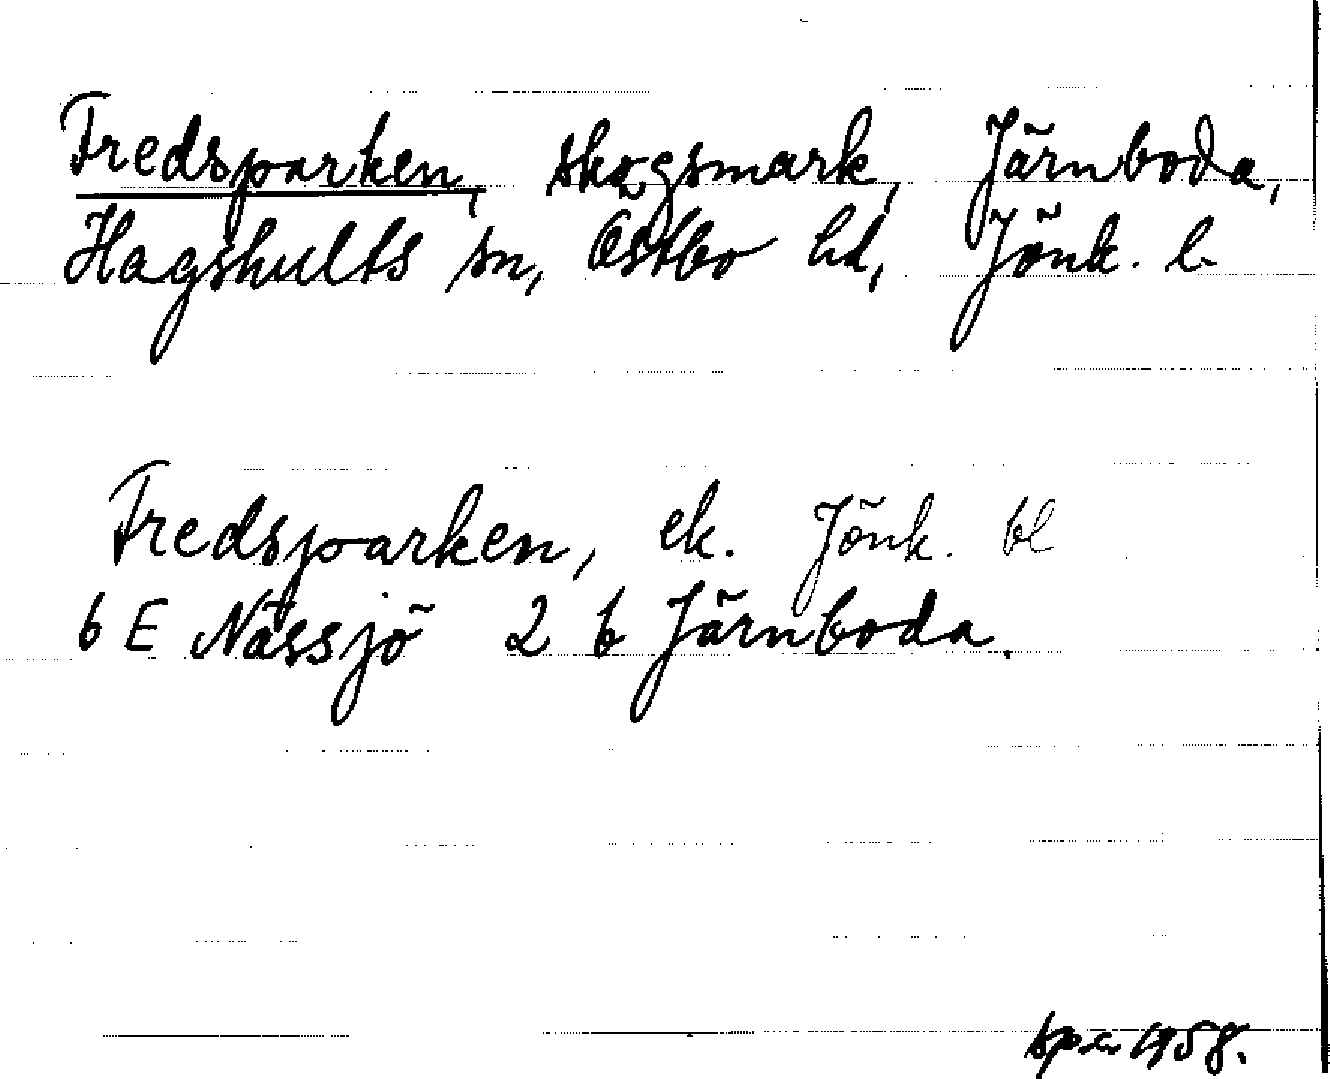 Fredsparken, skogsmark, Järnboda,
Hagshults sn, Östbo hd, Jönk. l.
Fredsparken, ek. Jönk. bl
6 E Nässjö 2 b Järnboda.
1958.